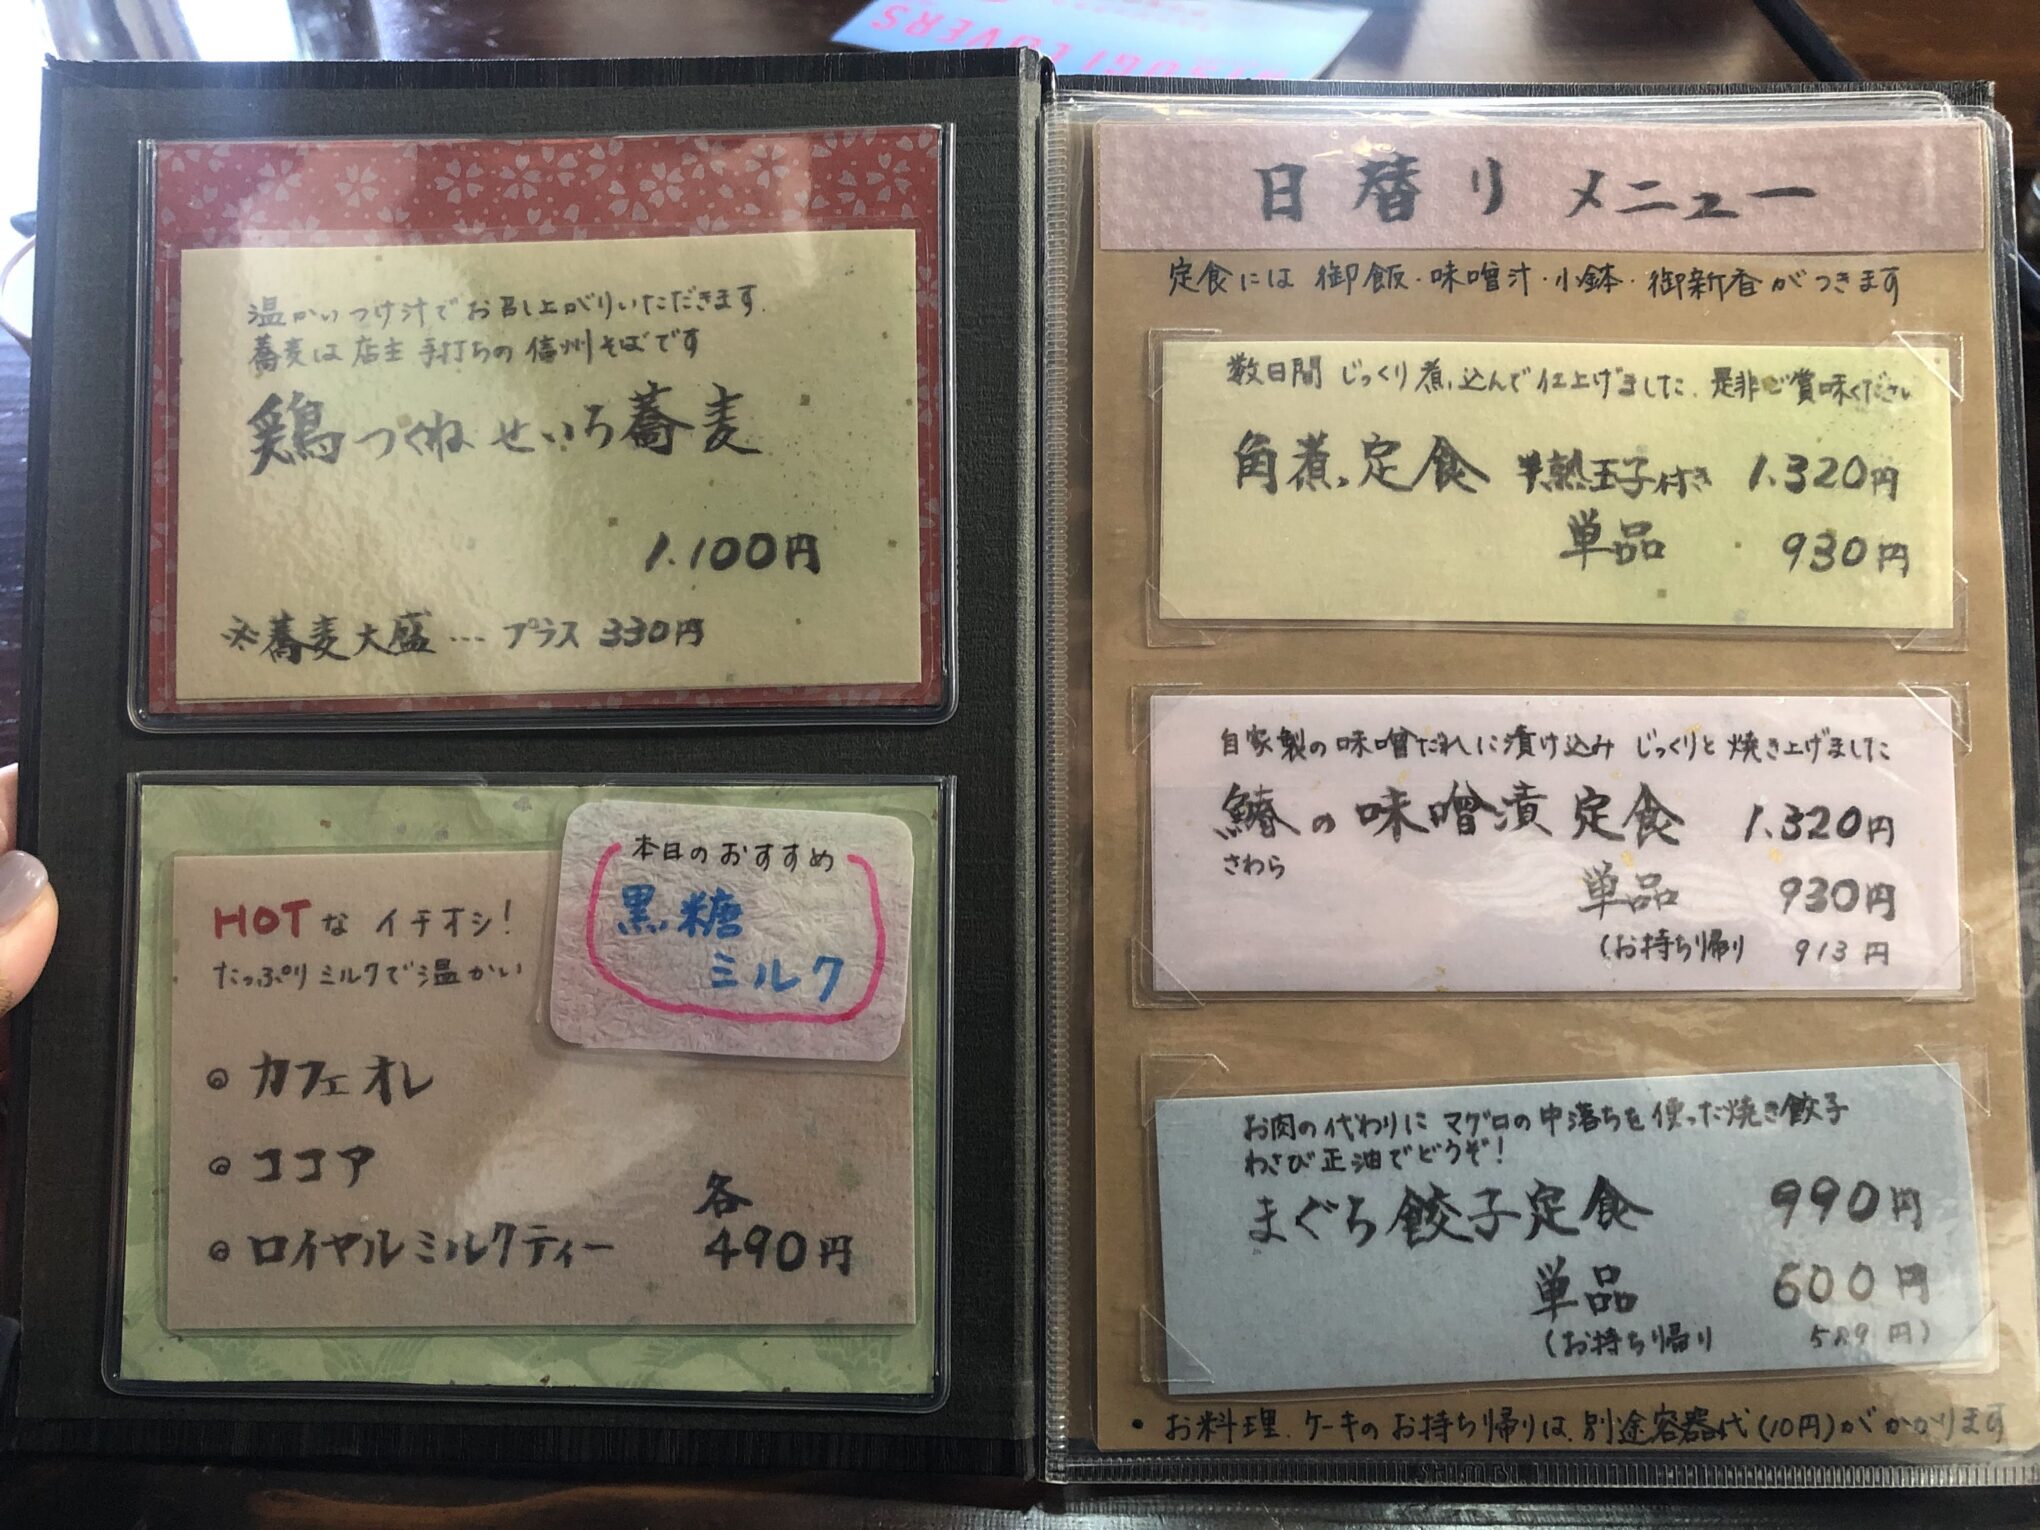 温かいつけ汁でお召し上がりいただきます.
蕎麦は店主手打ちの信州そばです
鶏つくねせいろ蕎麦
1.100円
※蕎麦大盛…プラス 330円
本日のおすすめ
黒糖
ミルク
HOTなイチオシ!
たっぷりミルクで温かい
カフェオレ
ココア
ロイヤルミルクティー
各
490円
LOVERS
日替りメニュー
定食には 御飯・味噌汁・小鉢・御新香がつきます
数日間 じっくり煮込んで仕上げました.是非ご賞味ください
角煮定食 半熟玉子付き 1.320円
単品 930円
自家製の味噌だれに漬け込み じっくりと焼き上げました
鰆の味噌漬定食 1.320円
さわら
単品 930円
(お持ち帰り 913円
お肉の代わりに マグロの中落ちを使った焼き餃子
わさび正油でどうぞ!
まぐろ餃子定食 990円
単品 600円
(お持ち帰り 589円)
・お料理.ケーキのお持ち帰りは.別途容器代(10円)がかかります